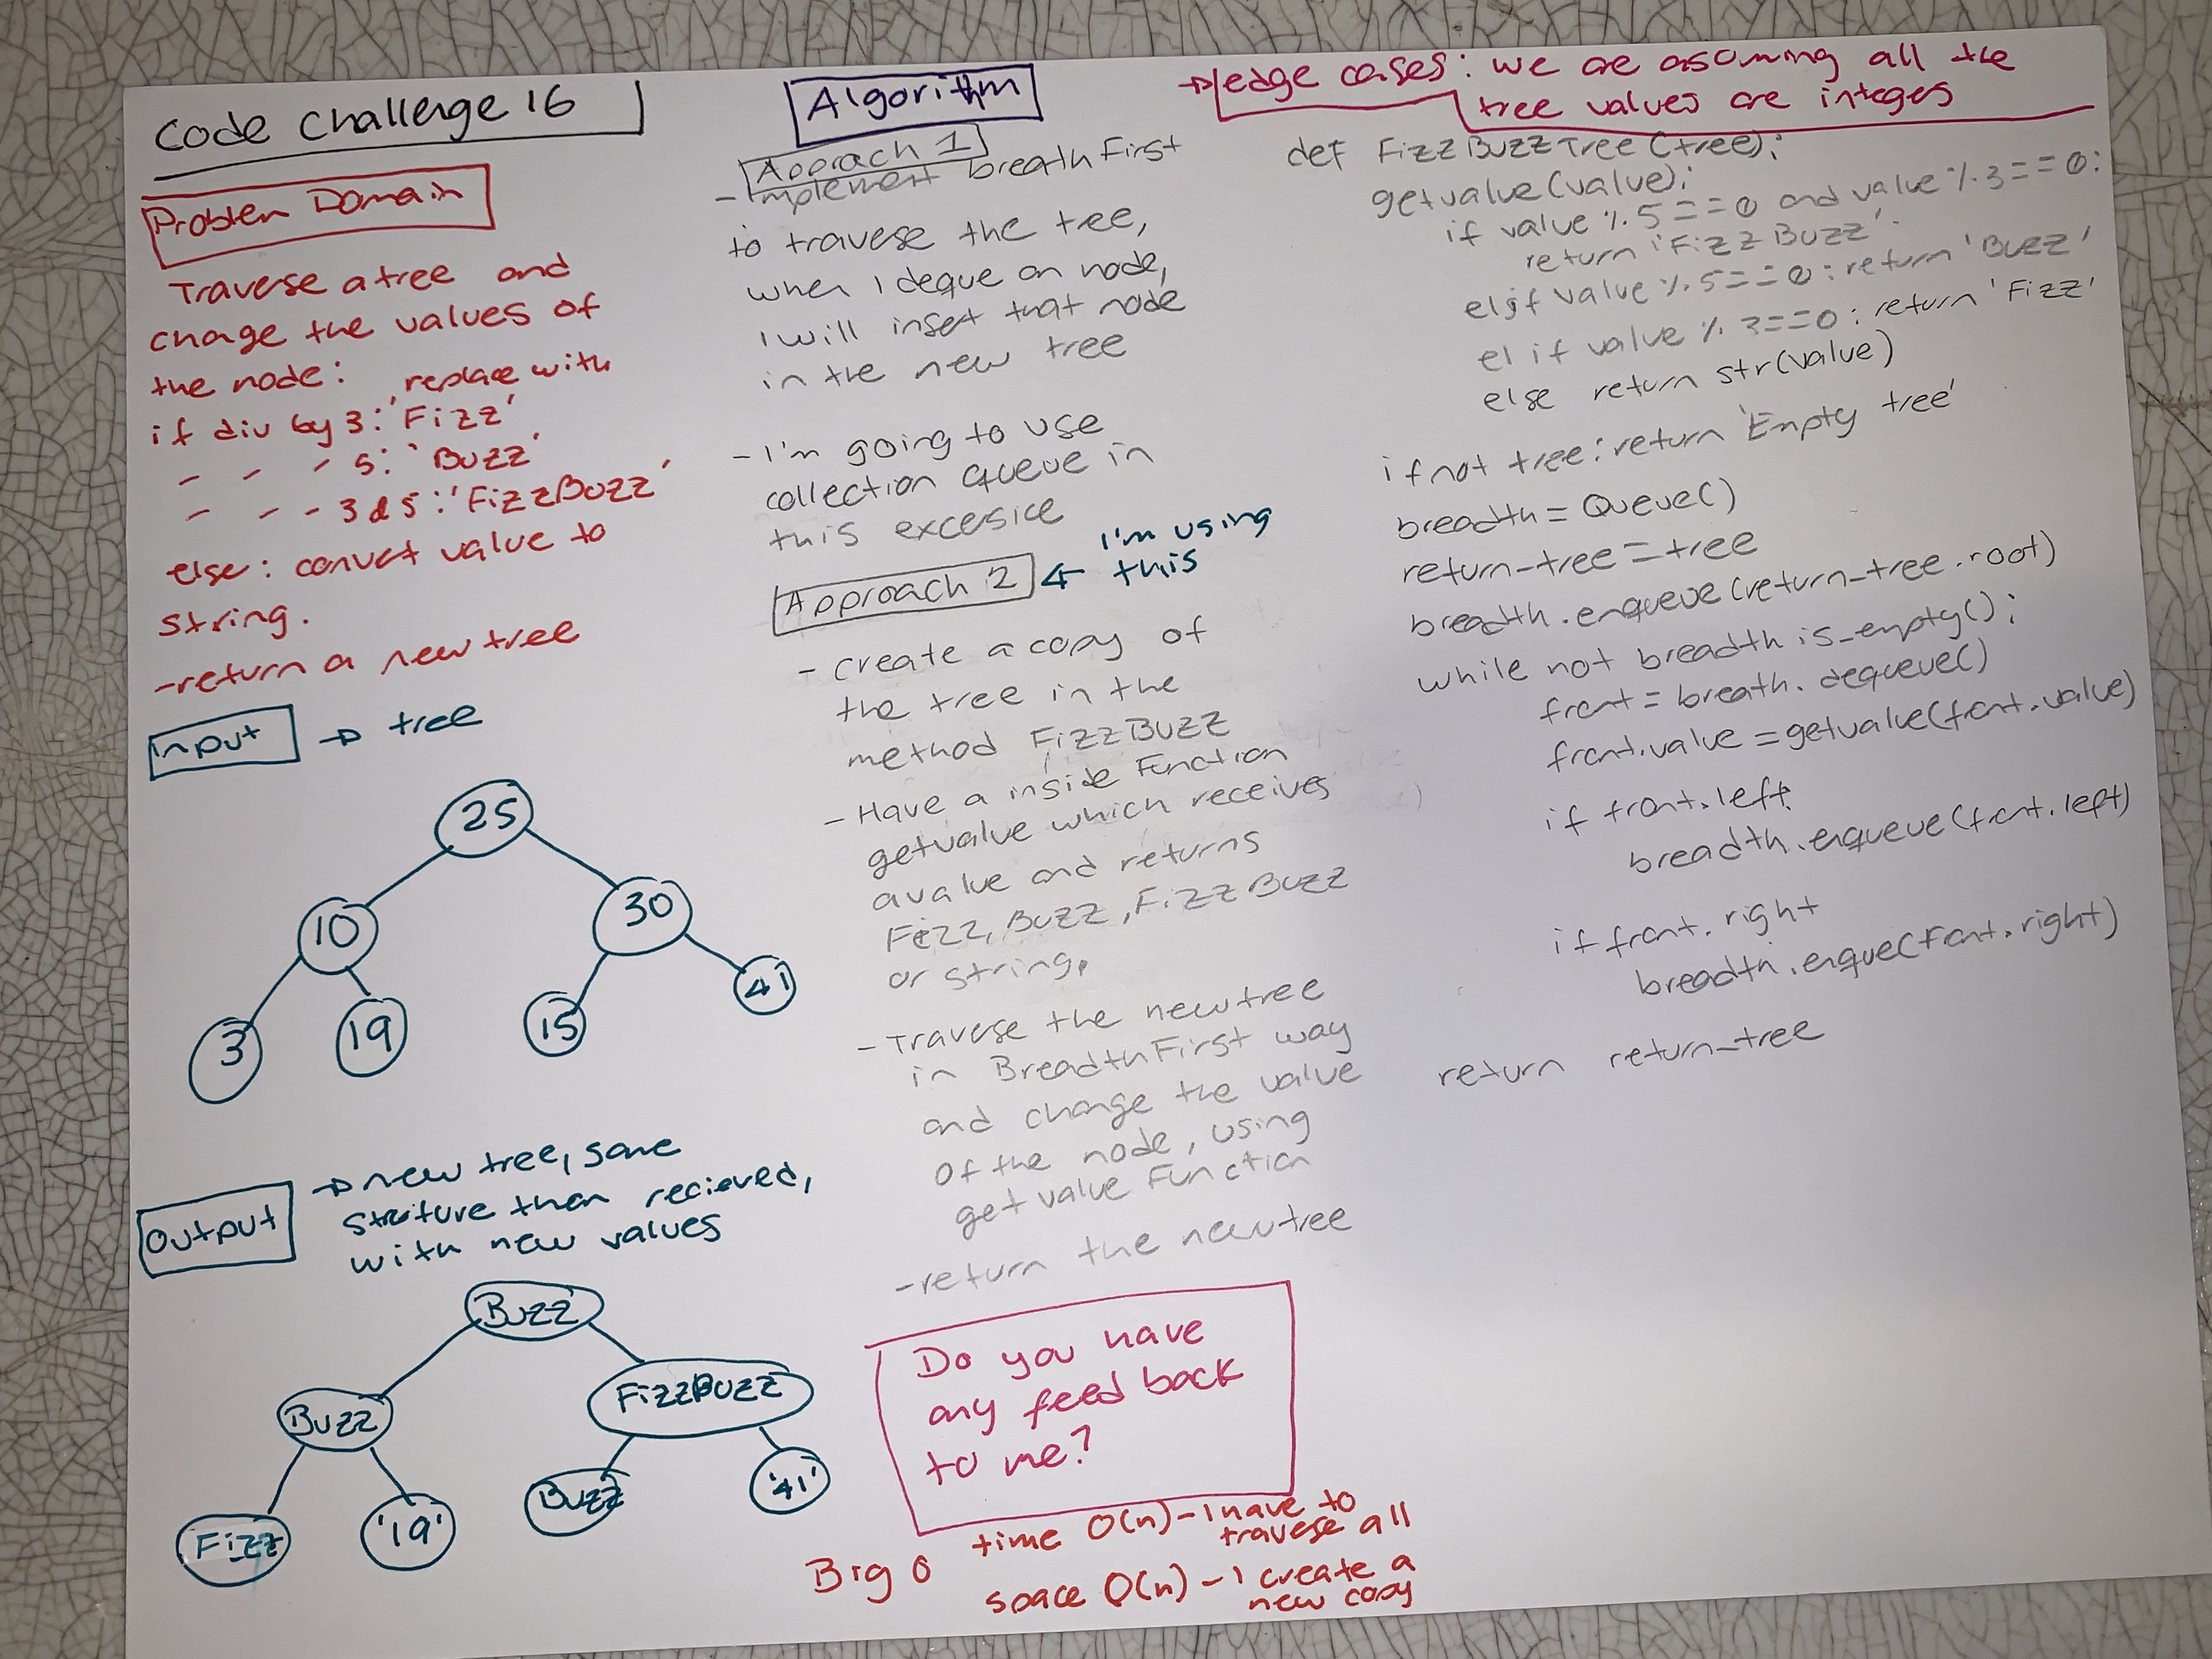 Code Challenge 16
Problem Domain
Traverse a tree and
change the values of
the node: replace with
if div by 3: 'Fizz'
- - - 5: 'Buzz'
- - - 3 & 5: 'FizzBuzz'
else: convert value to
string.
-return a new tree
input → tree
25
10
30
3
19
15
41
Output
→ new tree, same
struture than recieved,
with new values
Buzz
Buzz
FizzBuzz
Fizz
'19'
Buzz
'41'
Algorithm
Approach 1
- Implement breath First
to travese the tree,
when I deque an node,
I will inset that node
in the new tree
- I'm going to use
collection queue in
this excesice
Approach 2 ← I'm using
this
- Create a copy of
the tree in the
method FizzBuzz
- Have a inside Function
getvalue which receives
a value and returns
Fizz, Buzz, FizzBuzz
or string.
- Travese the new tree
in BreadthFirst way
and change the value
of the node, using
get value Function
- return the new tree
Do you have
any feed back
to me?
Big O
time O(n) - I have to
travese all
space O(n) - I create a
new copy
→ edge cases: we are asuming all the
tree values are integes
def FizzBuzzTree(tree):
getvalue(value):
if value % 5 == 0 and value % 3 == 0:
return 'FizzBuzz'
elif value % 5 == 0: return 'Buzz'
elif value % 3 == 0: return 'Fizz'
else return str(value)
if not tree: return 'Empty tree'
breadth = Queue()
return_tree = tree
breadth.enqueue(return_tree.root)
while not breadth is_empty():
front = breath.dequeue()
front.value = getvalue(front.value)
if front.left:
breadth.enqueue(front.left)
if front.right
breadth.enque(front.right)
return return_tree